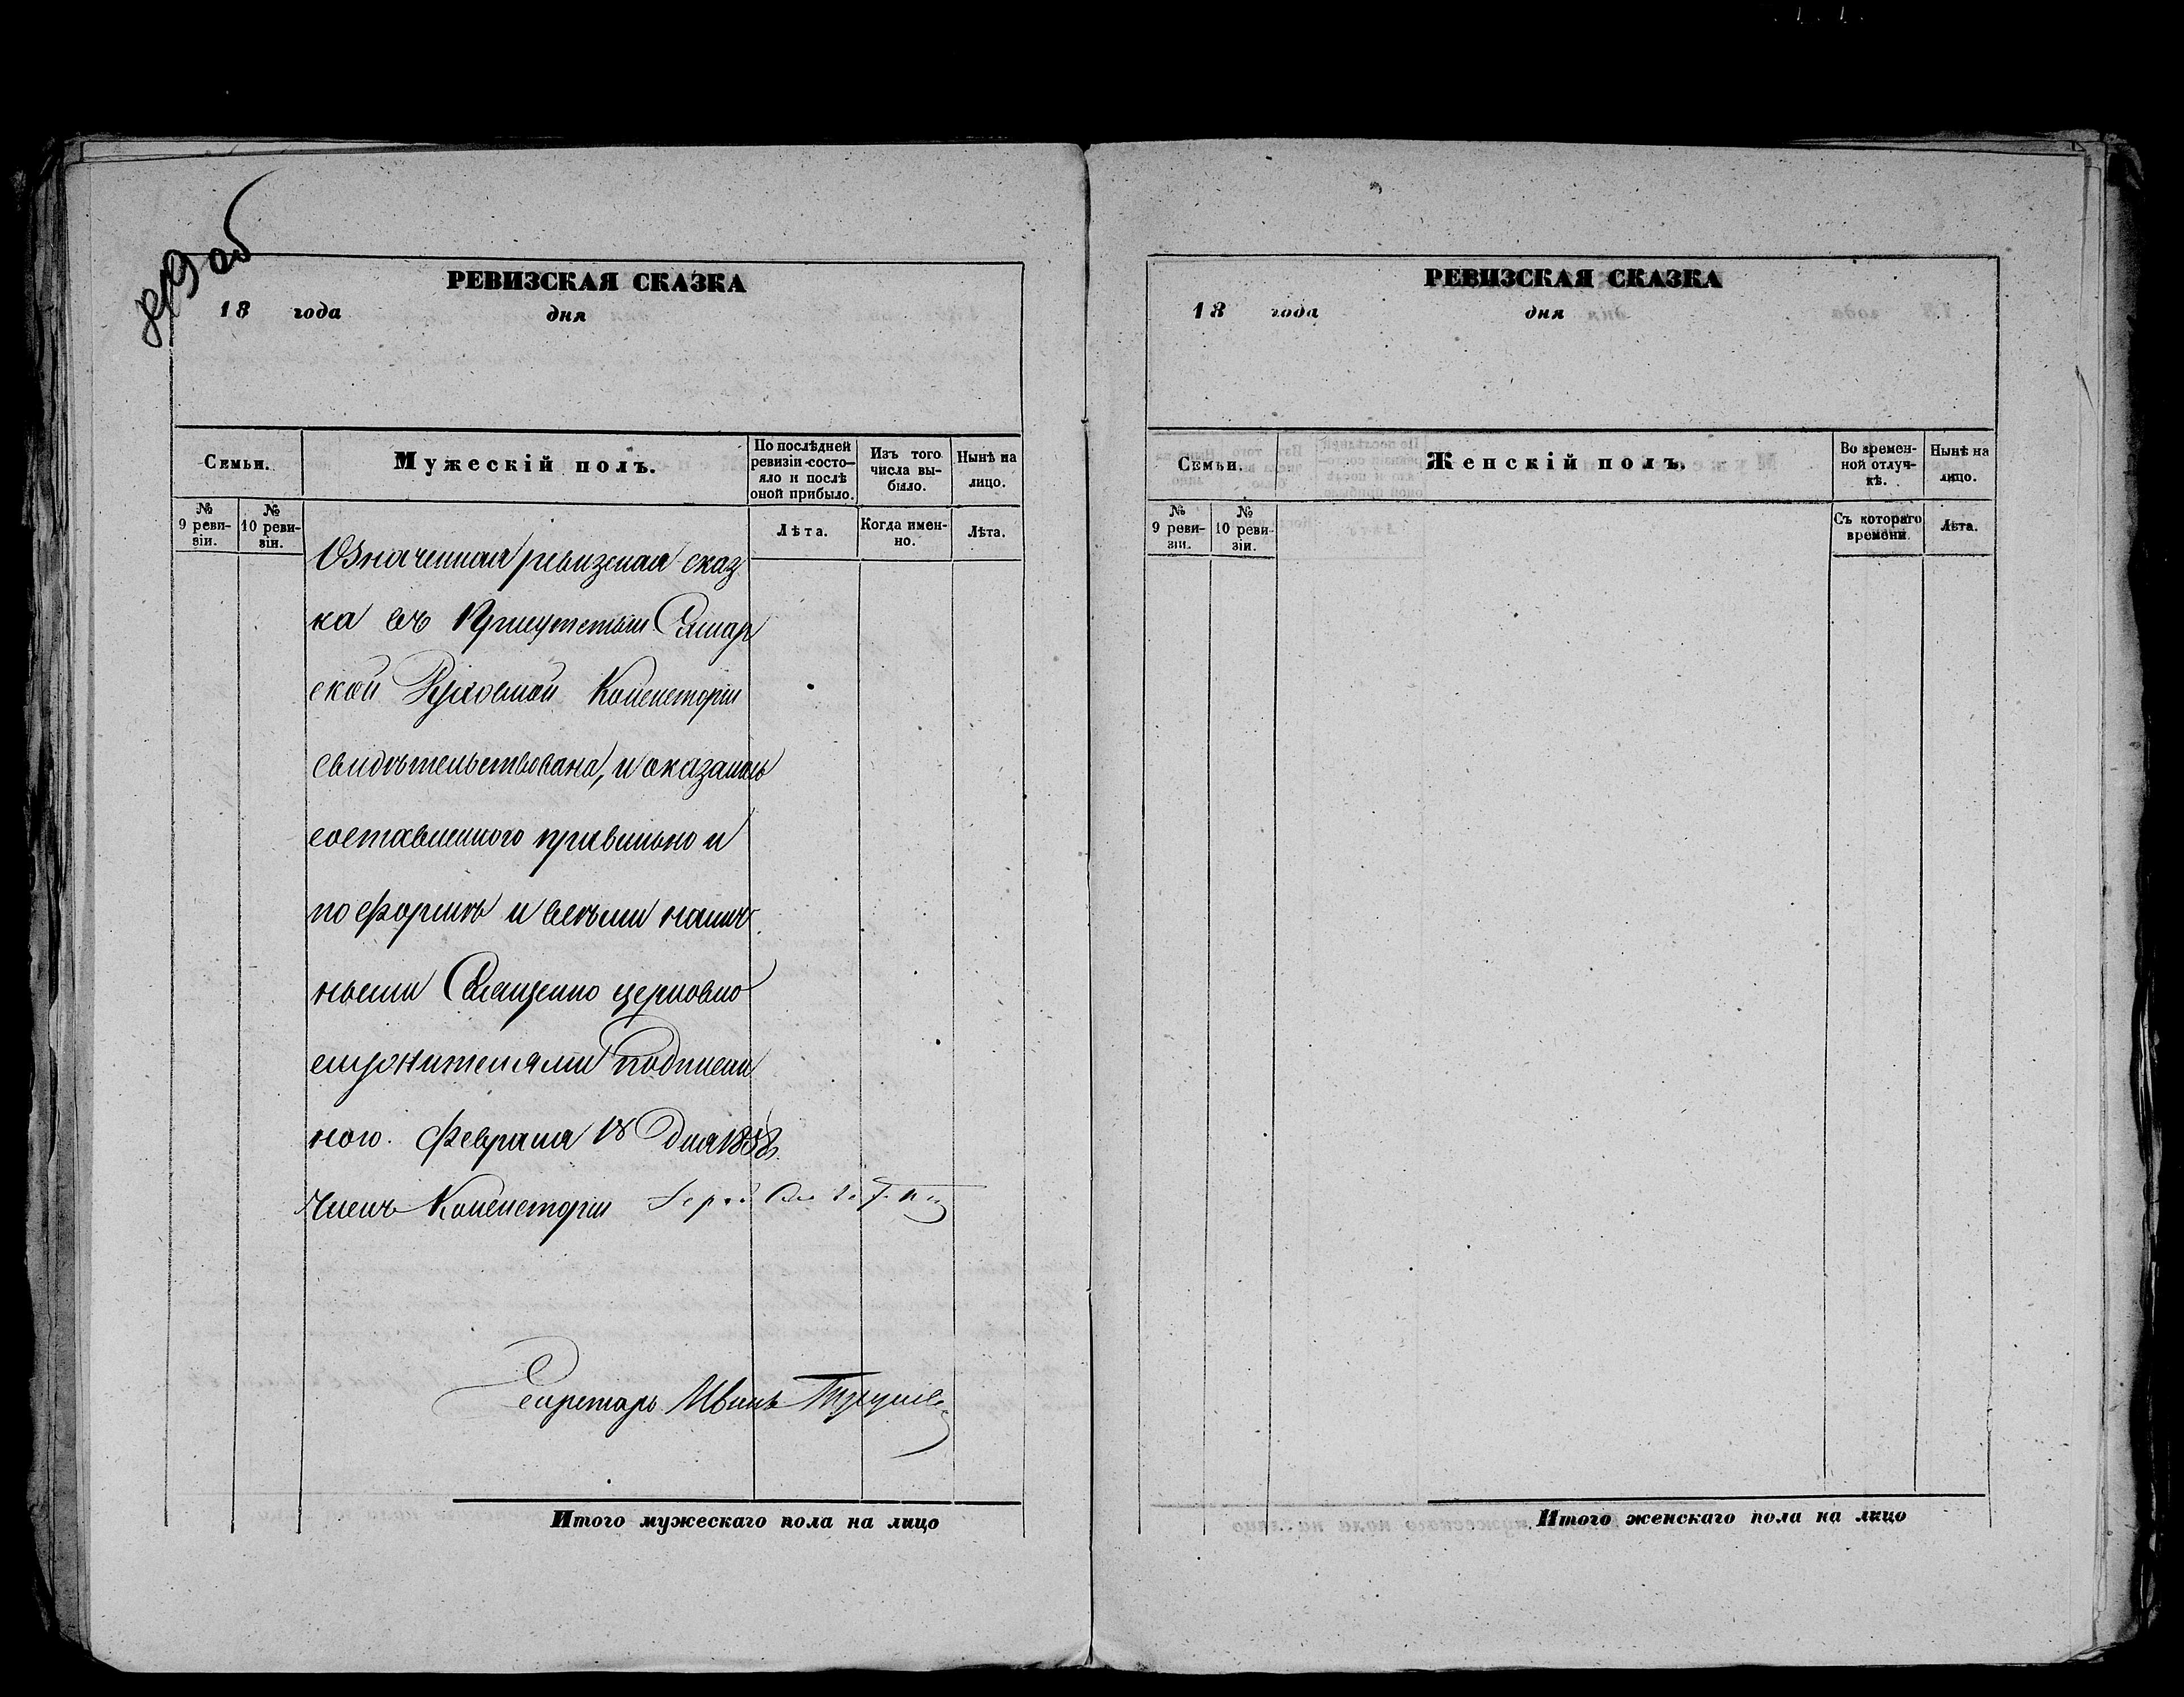 849 об
РЕВИЗСКАЯ СКАЗКА
18 года дня
Семьи.
Мужескій полъ.
По послѣдней
ревизіи состо-
яло и послѣ
оной прибыло.
Изъ того
числа вы-
было.
Нынѣ на
лицо.
№
9 реви-
зіи.
№
10 реви-
зіи.
Лѣта.
Когда имен-
но.
Лѣта.
Означенная ревизская сказ
ка въ Присутствіи Самар
ской Духовной Консисторіи
свидѣтельствована, и оказалась
составленною правильно и
по формѣ и всѣми налич
ными Священно церковно
служителями подписан
ною. Февраля 18 дня 1858
Членъ Консисторіи
Секретарь Иванъ
Итого мужескаго пола на лицо
РЕВИЗСКАЯ СКАЗКА
18 года дня
Семьи.
Женскій полъ.
Во времен-
ной отлуч-
кѣ.
Нынѣ на
лицо.
№
9 реви-
зіи.
№
10 реви-
зіи.
Съ котораго
времени.
Лѣта.
Итого женскаго пола на лицо